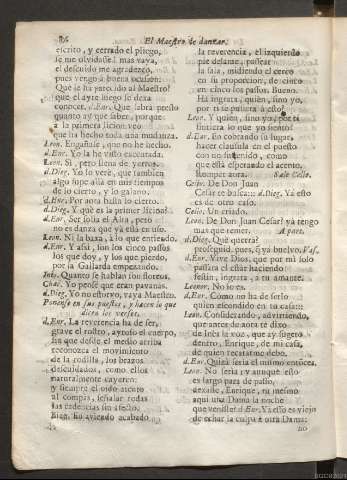 El Maestro de danzar.
escrito, y cerrado el pliego,
se me olvidasse! mas vaya,
el descuido me agradezco,
pues vengo à buena ocasion:
Què le ha parecido al Maestro?
que el ayre luego se dexa
conocer. d.Enr. Que sabrà presto
quanto ay que saber, porque
à la primera licion veo
que ha hecho toda una mudanza.
Leon. Engañase, que no he hecho.
d.Enr. Yo la he visto executada.
Leon. Sì, pero fuera de tiempo.
d.Dieg. Yo lo verè, que tambien
algo supe allà en mis tiempos
de lo cierto, y lo galano.
d.Enr. Por aora basta lo cierto.
d.Dieg. Y què es la primer licion?
d.Enr. Ser solìa el Alta, pero
no es danza que yà està en uso.
Leon. Ni la baxa, à lo que entiendo.
d.Enr. Y assi, son los cinco passos
los que doy, y los que pierdo,
por la Gallarda empezando.
Inès. Quanto se hablan son flores.
Chac. Yo pensè que eran pavanas.
d.Dieg. Yo no estorvo, vaya Maestro.
Ponense en sus puestos, y hacen lo que
dicen los versos.
d.Enr. La reverencia ha de ser,
grave el rostro, ayroso el cuerpo,
sin que desde el medio arriba
reconozca el movimiento
de la rodilla, los brazos
descuidados, como ellos
naturalmente cayeren:
y siempre el oido atento
al compàs, señalar todas
las cadencias sin afecto.
Bien. En aviendo acabado
la reverencia, el izquierdo
pie delante, passear
la sala, midiendo el cerco
en su proporcion, de cinco
en cinco los passos. Bueno.
Ha ingrata, quien, sino yo,
por ti se pusiera à esto?
Leon. Y quien, sino yo, por ti
sintiera lo que yo siento?
d.Enr. En cobrando su lugar,
hacer clausula en el puesto
con un sostenido, como
que està esperando el acento,
Romper aora. Sale Celio.
Celio. De Don Juan
Cesar te busca:: d.Dieg. Yà esto
es de otro caso.
Celio. Un criado.
Leon. De Don Juan Cesar? yà tengo
mas que temer. Aparte.
d.Dieg. Què querrà?
proseguid, pues, que yà buelvo. Vas.
d.Enr. Vive Dios, que por mi solo
passàra el estàr haciendo
festin, ingrata, à tu amante.
Leonor. No lo es.
d.Enr. Còmo no ha de serlo
quien escondido en tu casa:::
Leon. Considerando, advirtiendo,
que antes de aora te dixo
de Inès la voz, que ay sugeto
dentro, Enrique, de mi casa,
de quien recatarme debo.
d.Enr. Quizà seria el mismo entōces.
Leon. No seria; y aunque esto
es largo para de passo,
dexasle, Enrique, tù mesmo
aqui una Dama la noche
que veniste? d.Enr. Yà esso es viejo
de echar la culpa à otra Dama:
no